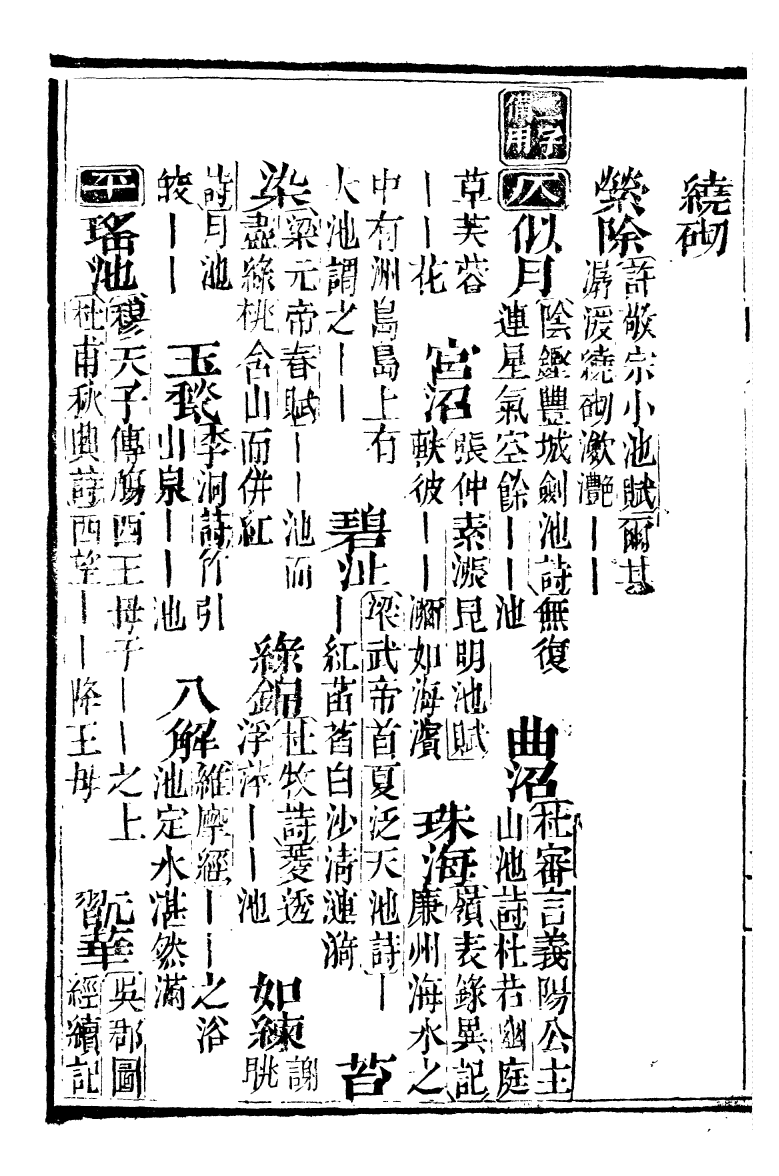 繞砌
縈除許敬宗小池賦爾其
潺湲繞砌瀲灩——
二字備用
仄似月陰鏗豐城劍池詩無復
連星氣空餘——池
曲沼杜審言義陽公主
山池詩杜若幽庭
草芙蓉
——花
宮沼張仲素漲昆明池賦
軼彼——瀰如海濱
珠海嶺表錄異記
廉州海水之
中有洲島島上有
大池謂之——
碧沚梁武帝首夏泛天池詩—
—紅菡萏白沙清漣漪
苔
染梁元帝春賦——池而
盡綠桃含山而併紅
綠錦杜牧詩菱透
浮萍——池
如練謝
朓
詩月池
皎——
玉甃李洞詩竹引
山泉——池
八解維摩經——之浴
池定水湛然滿
平瑤池穆天子傳觴西王母子——之上
杜甫秋興詩西望——降王母
翫華吳郡圖
經續記